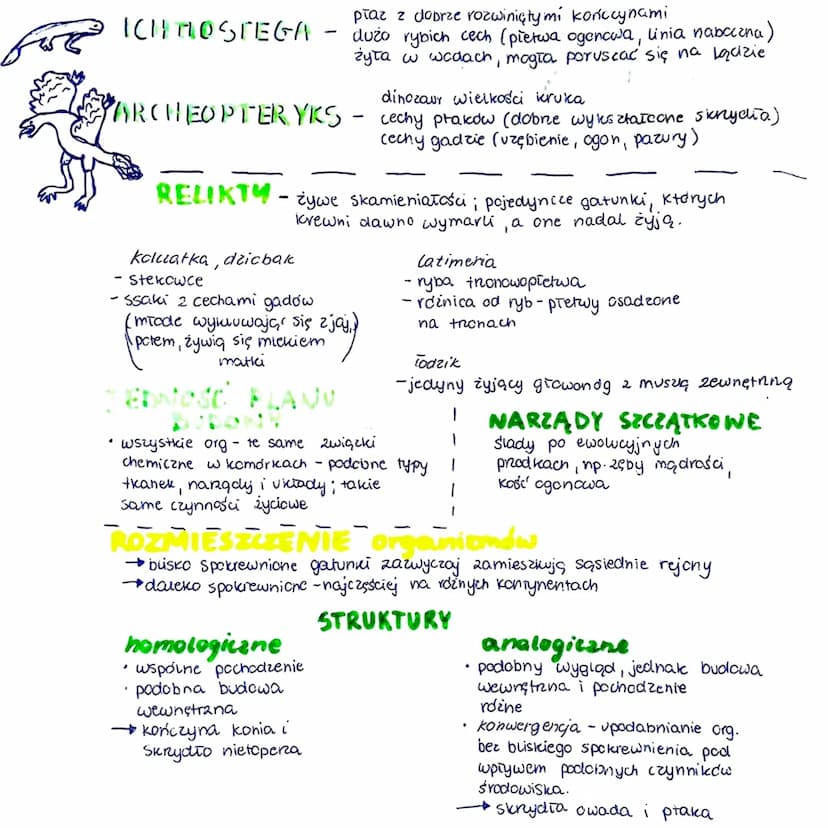 ICHTIOSTEGA - płaz z dobrze rozwiniętymi kończynami
dużo rybich cech (płetwa ogonowa, linia naboczna)
żyła w wodach, mogła poruszać się na lądzie
ARCHEOPTERYKS - dinozaur wielkości kruka
cechy ptaków (dobrze wykształcone skrzydła)
cechy gadzie (uzębienie, ogon, pazury)
RELIKTY - żywe skamieniałości; pojedyncze gatunki, których
krewni dawno wymarli, a one nadal żyją.
kolczatka, dziobak
- stekowce
- ssaki z cechami gadów
(młode wykluwając się z jaj,
potem, żywią się mlekiem
matki)
latimeria
- ryba trzonowopłetwa
- różnica od ryb - płetwy osadzone
na trzonach
łodzik
- jedyny żyjący głowonóg z muszlą zewnętrzną
JEDNOŚĆ PLANU
BUDOWY
• wszystkie org - te same związki
chemiczne w komórkach - podobne typy
tkanek, narządy i układy; takie
same czynności życiowe
NARZĄDY SZCZĄTKOWE
ślady po ewolucyjnych
przodkach, np. zęby mądrości,
kość ogonowa
ROZMIESZCZENIE organizmów
→ blisko spokrewnione gatunki zazwyczaj zamieszkują sąsiednie rejony
→ daleko spokrewnione - najczęściej na różnych kontynentach
STRUKTURY
homologiczne
• wspólne pochodzenie
• podobna budowa
wewnętrzna
→ kończyna konia i
skrzydło nietoperza
analogiczne
• podobny wygląd, jednak budowa
wewnętrzna i pochodzenie
różne
• konwergencja - upodabnianie org.
bez bliskiego spokrewnienia pod
wpływem podobnych czynników
środowiska.
→ skrzydła owada i ptaka